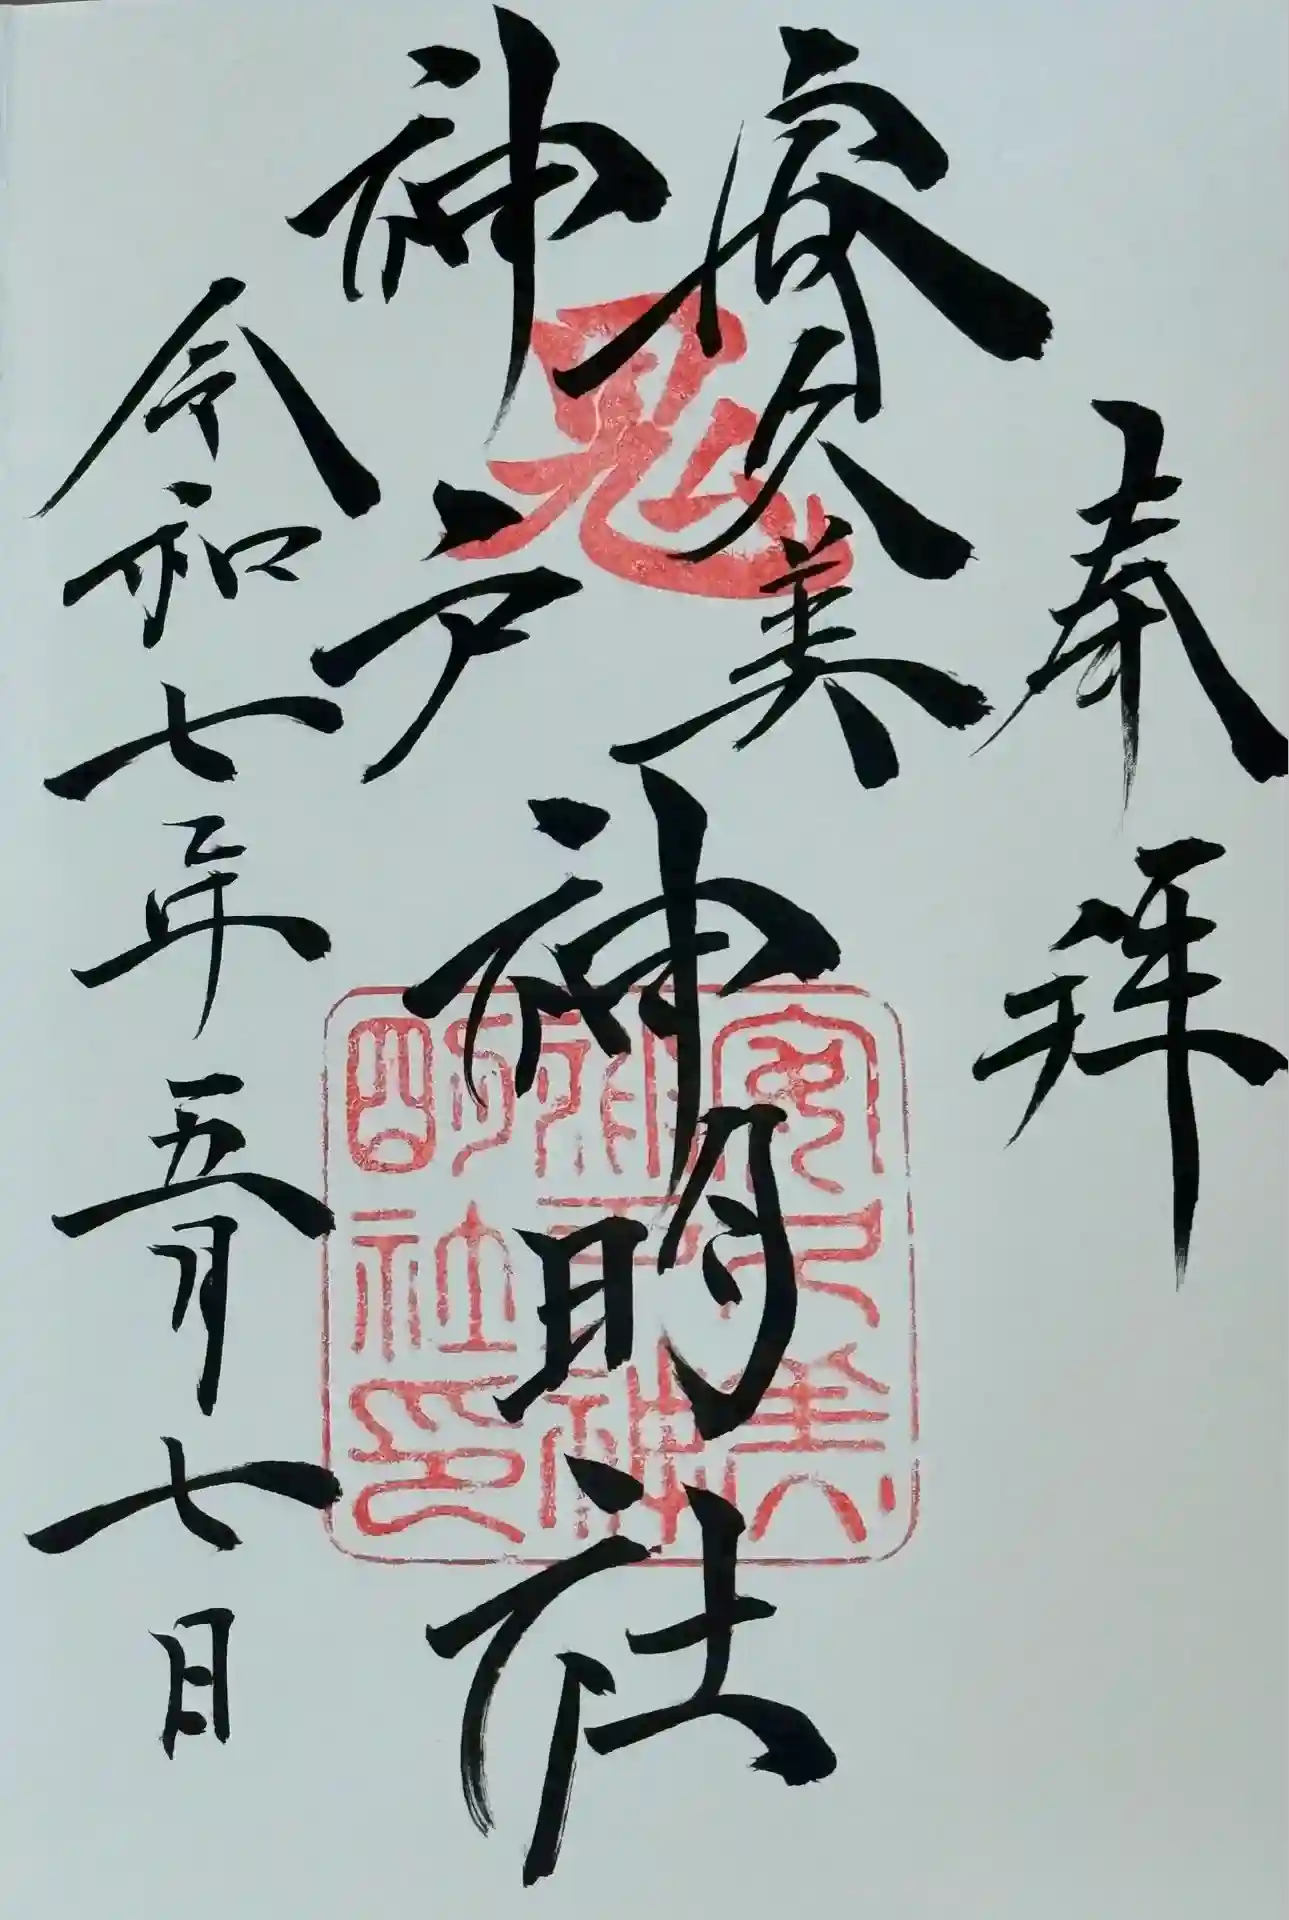 奉拝
安久美
神戸
神明社
令和七年五月七日
鬼
安久美
神戸神
明社印